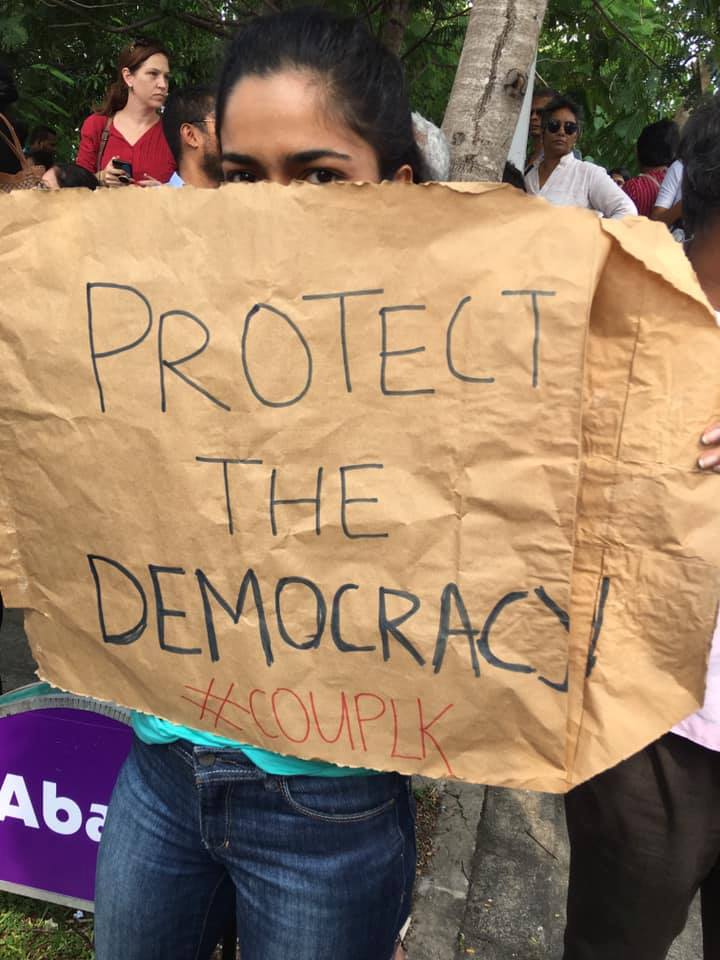 PROTECT
THE
DEMOCRACY
#COUPLK
Aba